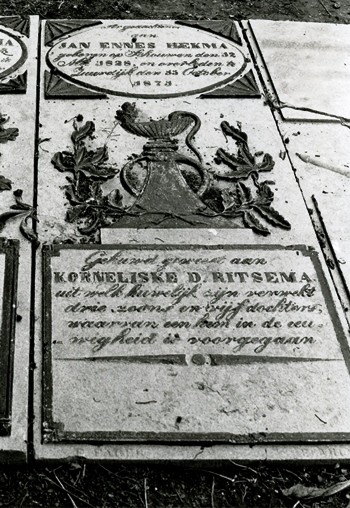 Ter gedachtenis
aan
JAN ENNES HEKMA
geboren op Schouwen den
1828, en overleden te
Zeuwelijk den 23 October
1873
Gehuwd geweest aan
KORNELISKE D. RITSEMA
uit welk huwelijk zijn verwekt
drie zoons en vijf dochters,
waarvan een hem in de eeu-
wigheid is voorgegaan